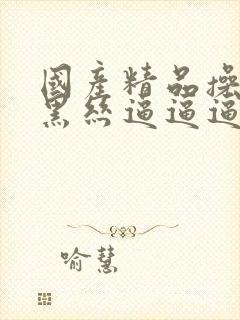 國產精品操
黑絲逼逼逼
喻慧